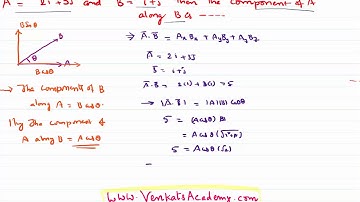 A = 2i+3j and B = i+j then the component of A
along B is ----
B sinθ
B
θ
A
B cosθ
→ The components of B
along A = B cosθ
lly The component of
A along B = A cosθ
→ A̅.B̅ = AxBx + AyBy + AzBz
A̅ = 2i+3j
B̅ = i+j
A̅.B̅ = 2(1) + 3(1) = 5
→ |A̅.B̅| = |A||B| cosθ
5 = (A cosθ) B
= A cosθ (√1²+1²)
5 = A cosθ (√2)
www.VenkatsAcademy.com